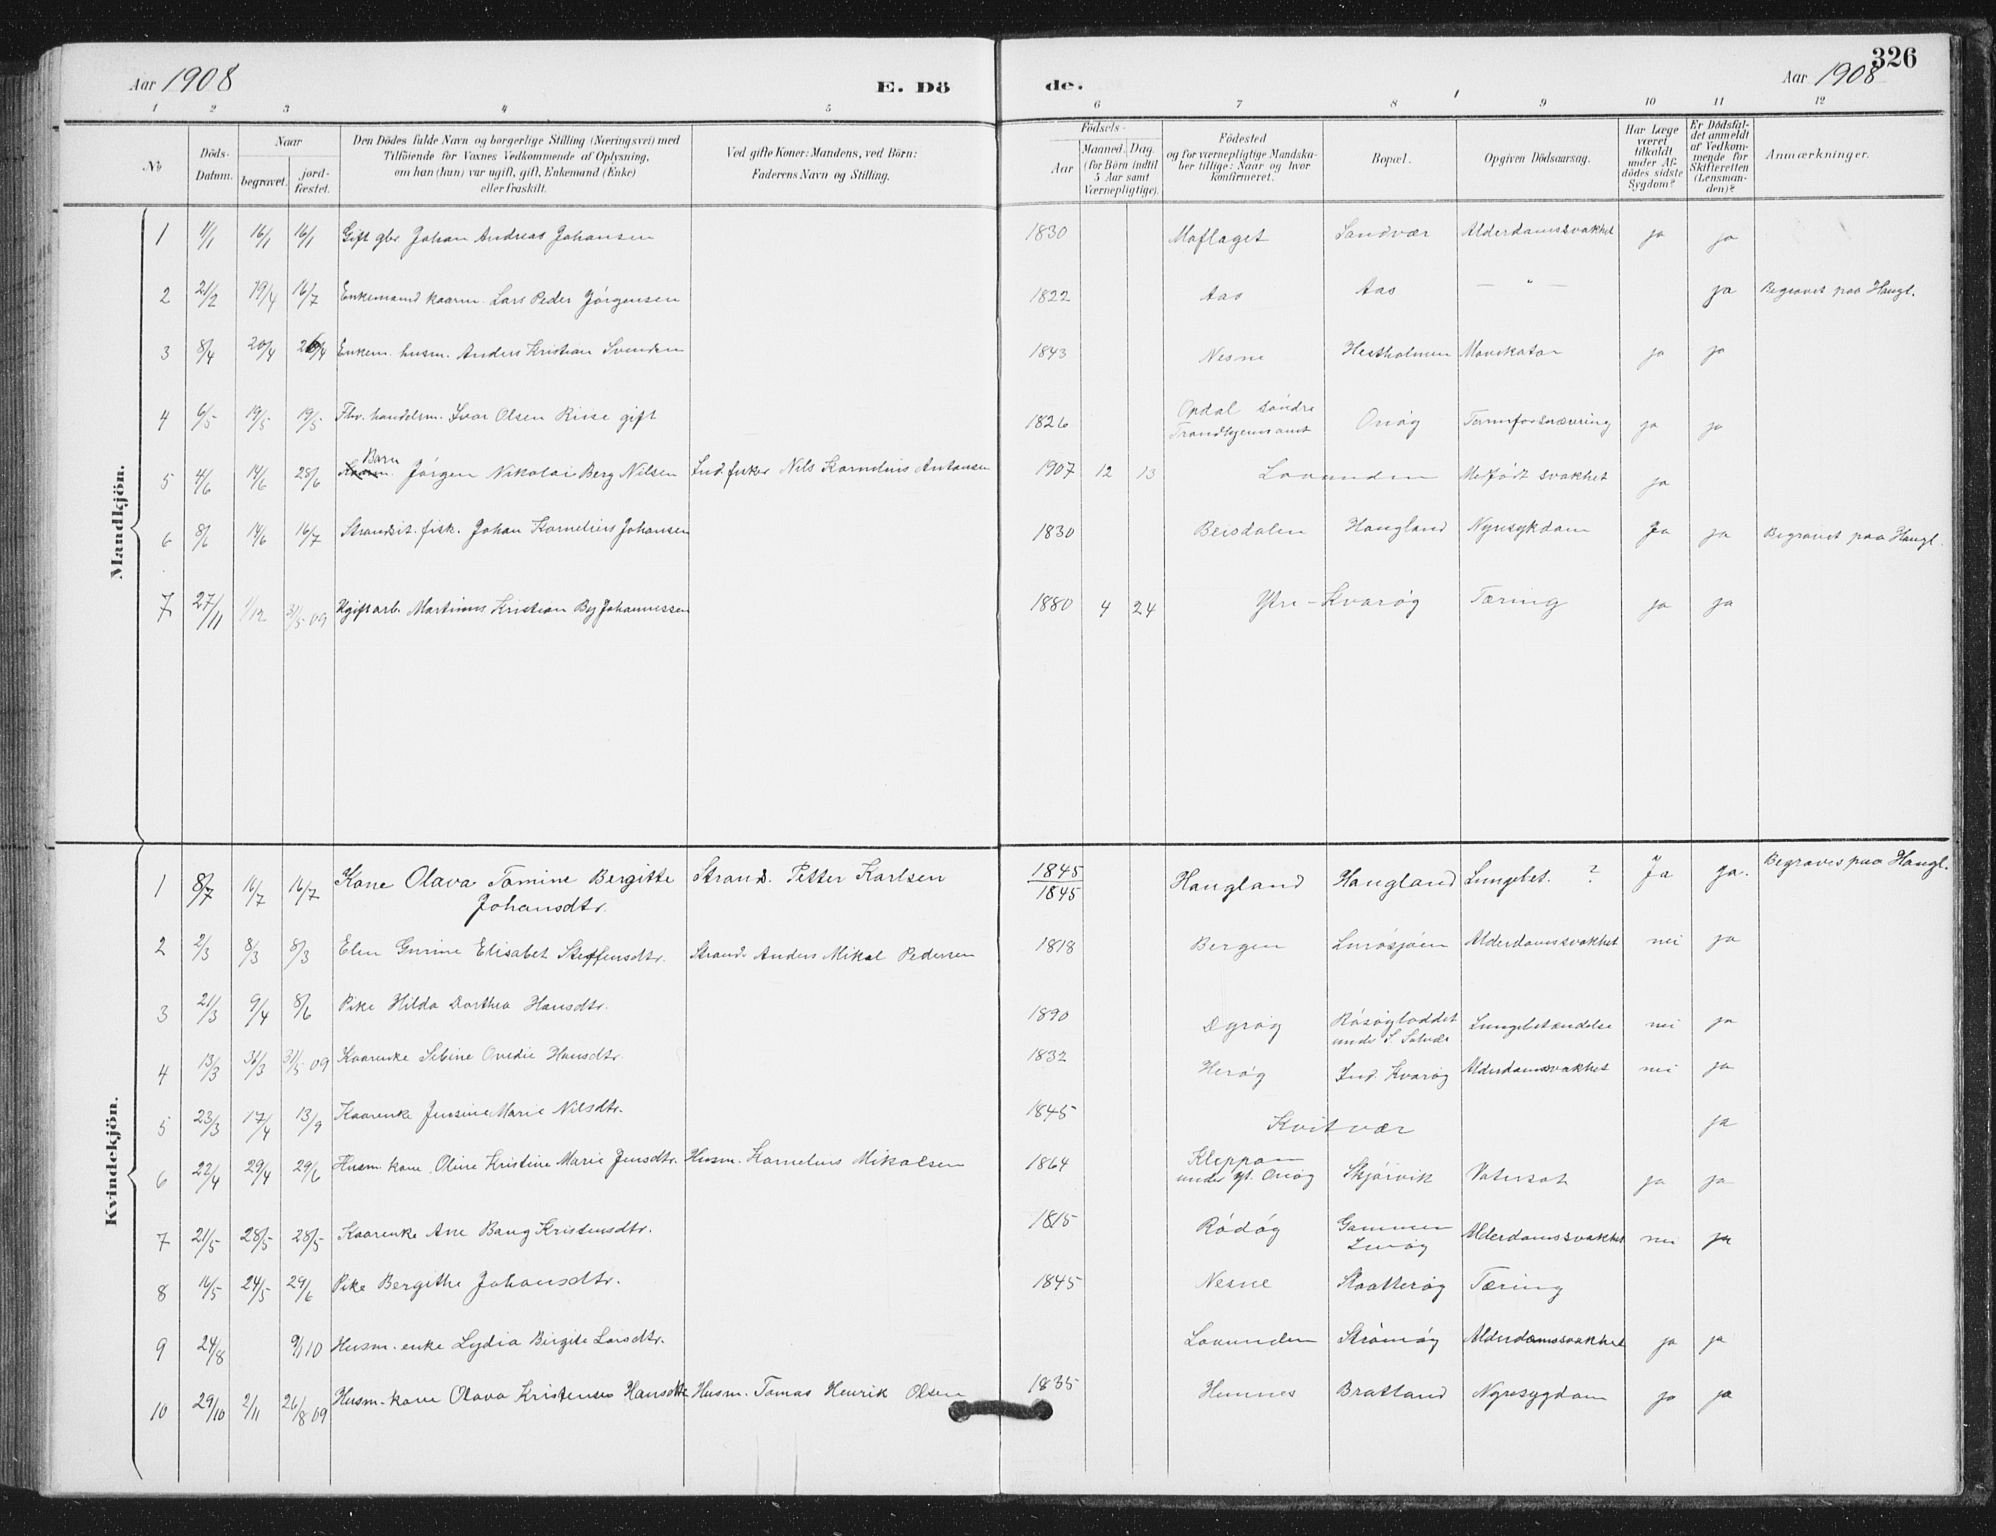 326
Aar 1908 E. Dö de. Aar 1908
1 2 3 4 5 6 7 8 9 10 11 12
№ Döds-Datum. Naar begravet. jord-fæstet. Den Dödes fulde Navn og borgerlige Stilling (Næringsvei) med Tilföiende for Voxnes Vedkommende af Oplysning, om han (hun) var ugift, gift, Enkemand (Enke) eller fraskilt. Ved gifte Koner: Mandens, ved Börn: Faderens Navn og Stilling. Födsels- Aar Maaned. Dag. (for Börn indtil 5 Aar samt Værnepligtige). Födested og for værnepligtige Mandska-ber tillige: Naar og hvor konfirmeret. Bopæl. Opgiven Dödsaarsag. Har Læge været tilkaldt under Af-dödes sidste Sygdom? Er Dödsfal-det anmeldt af Vedkom-mende for Skifteretten (Lensman-den)? Anmærkninger.
Mandkjön.
1 11/1 16/1 16/1 Gift gbr Johan Andreas Johansen 1830 Moflaget Sandvær Alderdomssvakhet ja ja
2 21/2 19/4 16/7 Enkemand kaarm. Lars Peder Jørgensen 1822 Aas Aas — " — ja Begravet paa Haugl.
3 8/4 20/4 20/4 Enkem. husm. Anders Kristian Svendsen 1843 Nesne Hestholmen Mavekatar ja ja
4 6/5 19/5 19/5 Fhv. handelsm. Ivar Olsen Riise gift 1826 Opdal søndre Trondhjems amt Onøy Tarmforsnævring ja ja
5 4/6 14/6 28/6 Barn Jørgen Nikolai Berg Nilsen Ind. fisker Nils Kornelius Antonsen 1907 12 13 Lovunden Medfødt svakhet ja
6 8/6 14/6 16/7 Strandsit. fisk. Johan Kornelius Johansen 1830 Beisdalen Haugland Nyresykdom Ja ja Begravet paa Haugl.
7 27/11 1/12 31/5-09 Ugift arb. Martinus Kristian By Johannessen 1880 4 24 Ytre-Kvarøy Tæring ja ja
Kvindekjön.
1 8/7 16/7 16/7 Kone Olava Tomine Bergitte Johansdtr. Strands. Petter Karlsen 1845 1845 Haugland Haugland Lungebet. ? Ja ja. Begraves paa Haugl.
2 2/3 8/3 8/3 Elen Gurine Elisabet Steffensdtr. Strands Anders Mikal Pedersen 1818 Bergen Lurøsjøen Alderdomssvakhet nei ja
3 21/3 9/4 8/6 Pike Hilda Dorthea Hansdtr. 1890 Dyrøy Røsøyloddet under S. Solvær Lungebetændelse nei ja
4 13/3 31/5 09 Kaarenke Sibine Ovedie Hansdtr. 1832 Herøy Ind. Kvarøy Alderdomssvakhet nei ja
5 23/3 17/4 13/9 Kaarenke Jensine Marie Nilsdtr. 1845 Kvitvær ja
6 22/4 29/4 29/6 Husm. kone Oline Kristine Marie Jensdtr. Husm. Kornelius Mikalsen 1864 Kleppan under yt. Onøy Skjærvik Vatersot ja ja
7 21/5 28/5 28/5 Kaarenke Ane Bang Kristensdtr. 1815 Rødøy Gammen Lurøy Alderdomssvakhet nei ja
8 16/5 24/5 29/6 Pike Bergithe Johansdtr. 1845 Nesne Staatterøy Tæring
9 24/8 9/10 Husm. enke Lydia Birgite Larsdtr. Lovunden Strømøy Alderdomssvakhet ja ja
10 29/10 2/11 26/8 09 Husm-kone Olava Kristense Hansdtr Husm. Tomas Henrik Olsen 1835 Hemnes Bratland Nyresygdom ja ja